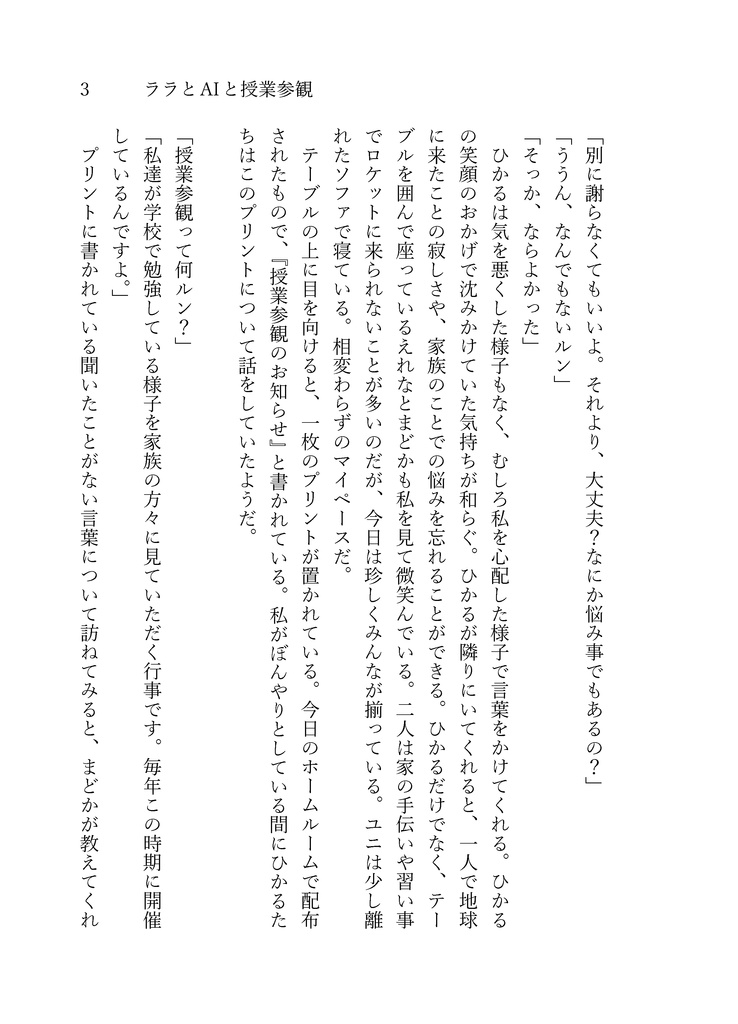 3　ララとAIと授業参観
「別に謝らなくてもいいよ。それより、大丈夫？なにか悩み事でもあるの？」
「ううん、なんでもないルン」
「そっか、ならよかった」
　ひかるは気を悪くした様子もなく、むしろ私を心配した様子で言葉をかけてくれる。ひかる
の笑顔のおかげで沈みかけていた気持ちが和らぐ。ひかるが隣りにいてくれると、一人で地球
に来たことの寂しさや、家族のことでの悩みを忘れることができる。ひかるだけでなく、テー
ブルを囲んで座っているえれなとまどかも私を見て微笑んでいる。二人は家の手伝いや習い事
でロケットに来られないことが多いのだが、今日は珍しくみんなが揃っている。ユニは少し離
れたソファで寝ている。相変わらずのマイペースだ。
　テーブルの上に目を向けると、一枚のプリントが置かれている。今日のホームルームで配布
されたもので、『授業参観のお知らせ』と書かれている。私がぼんやりとしている間にひかるた
ちはこのプリントについて話をしていたようだ。
「授業参観って何ルン？」
「私達が学校で勉強している様子を家族の方々に見ていただく行事です。毎年この時期に開催
しているんですよ。」
　プリントに書かれている聞いたことがない言葉について訪ねてみると、まどかが教えてくれ